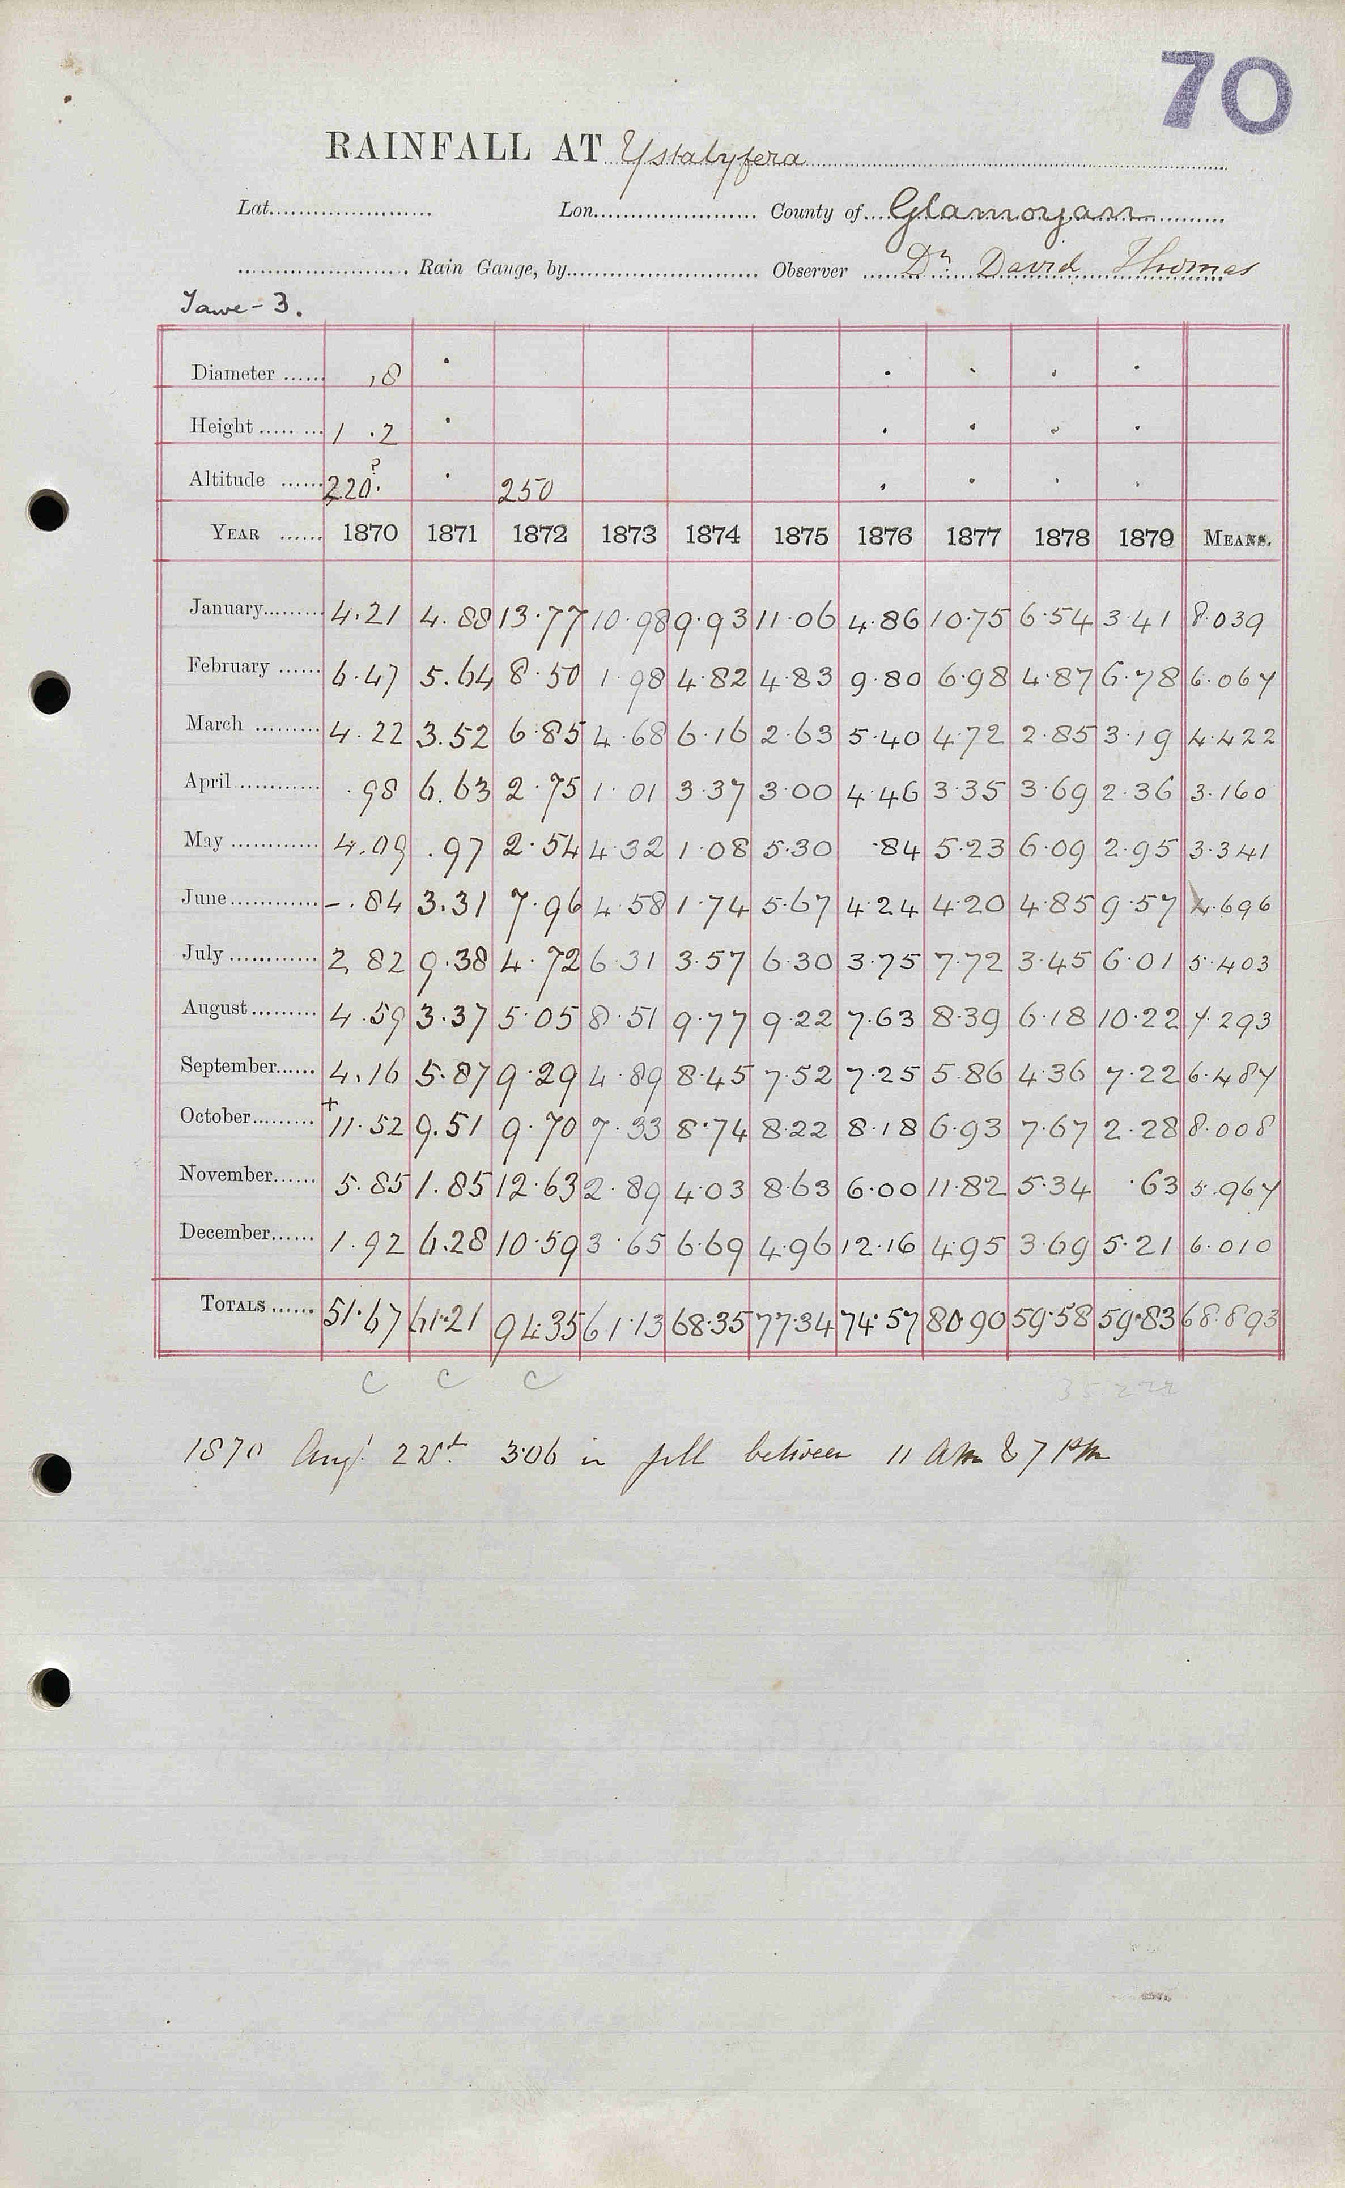 70
RAINFALL AT Ystalyfera
Lat. Lon. County of Glamorgan
Rain Gauge, by Observer Dr. David Thomas
Tawe - 3.
Diameter ,8
Height 1 .2
Altitude 220? 250
YEAR 1870 1871 1872 1873 1874 1875 1876 1877 1878 1879 MEANS.
January 4.21 4.88 13.77 10.98 9.93 11.06 4.86 10.75 6.54 3.41 8.039
February 6.47 5.64 8.50 1.98 4.82 4.83 9.80 6.98 4.87 6.78 6.067
March 4.22 3.52 6.85 4.68 6.16 2.63 5.40 4.72 2.85 3.19 4.422
April .98 6.63 2.75 1.01 3.37 3.00 4.46 3.35 3.69 2.36 3.160
May 4.09 .97 2.54 4.32 1.08 5.30 .84 5.23 6.09 2.95 3.341
June -.84 3.31 7.96 4.58 1.74 5.67 4.24 4.20 4.85 9.57 4.696
July 2.82 9.38 4.72 6.31 3.57 6.30 3.75 7.72 3.45 6.01 5.403
August 4.59 3.37 5.05 8.51 9.77 9.22 7.63 8.39 6.18 10.22 7.293
September 4.16 5.87 9.29 4.89 8.45 7.52 7.25 5.86 4.36 7.22 6.487
October +11.52 9.51 9.70 7.33 8.74 8.22 8.18 6.93 7.67 2.28 8.008
November 5.85 1.85 12.63 2.89 4.03 8.63 6.00 11.82 5.34 .63 5.967
December 1.92 6.28 10.59 3.65 6.69 4.96 12.16 4.95 3.69 5.21 6.010
TOTALS 51.67 61.21 94.35 61.13 68.35 77.34 74.57 80.90 59.58 59.83 68.893
C C C
1870 Aug 3.06 in fell between 11 AM & 7 PM